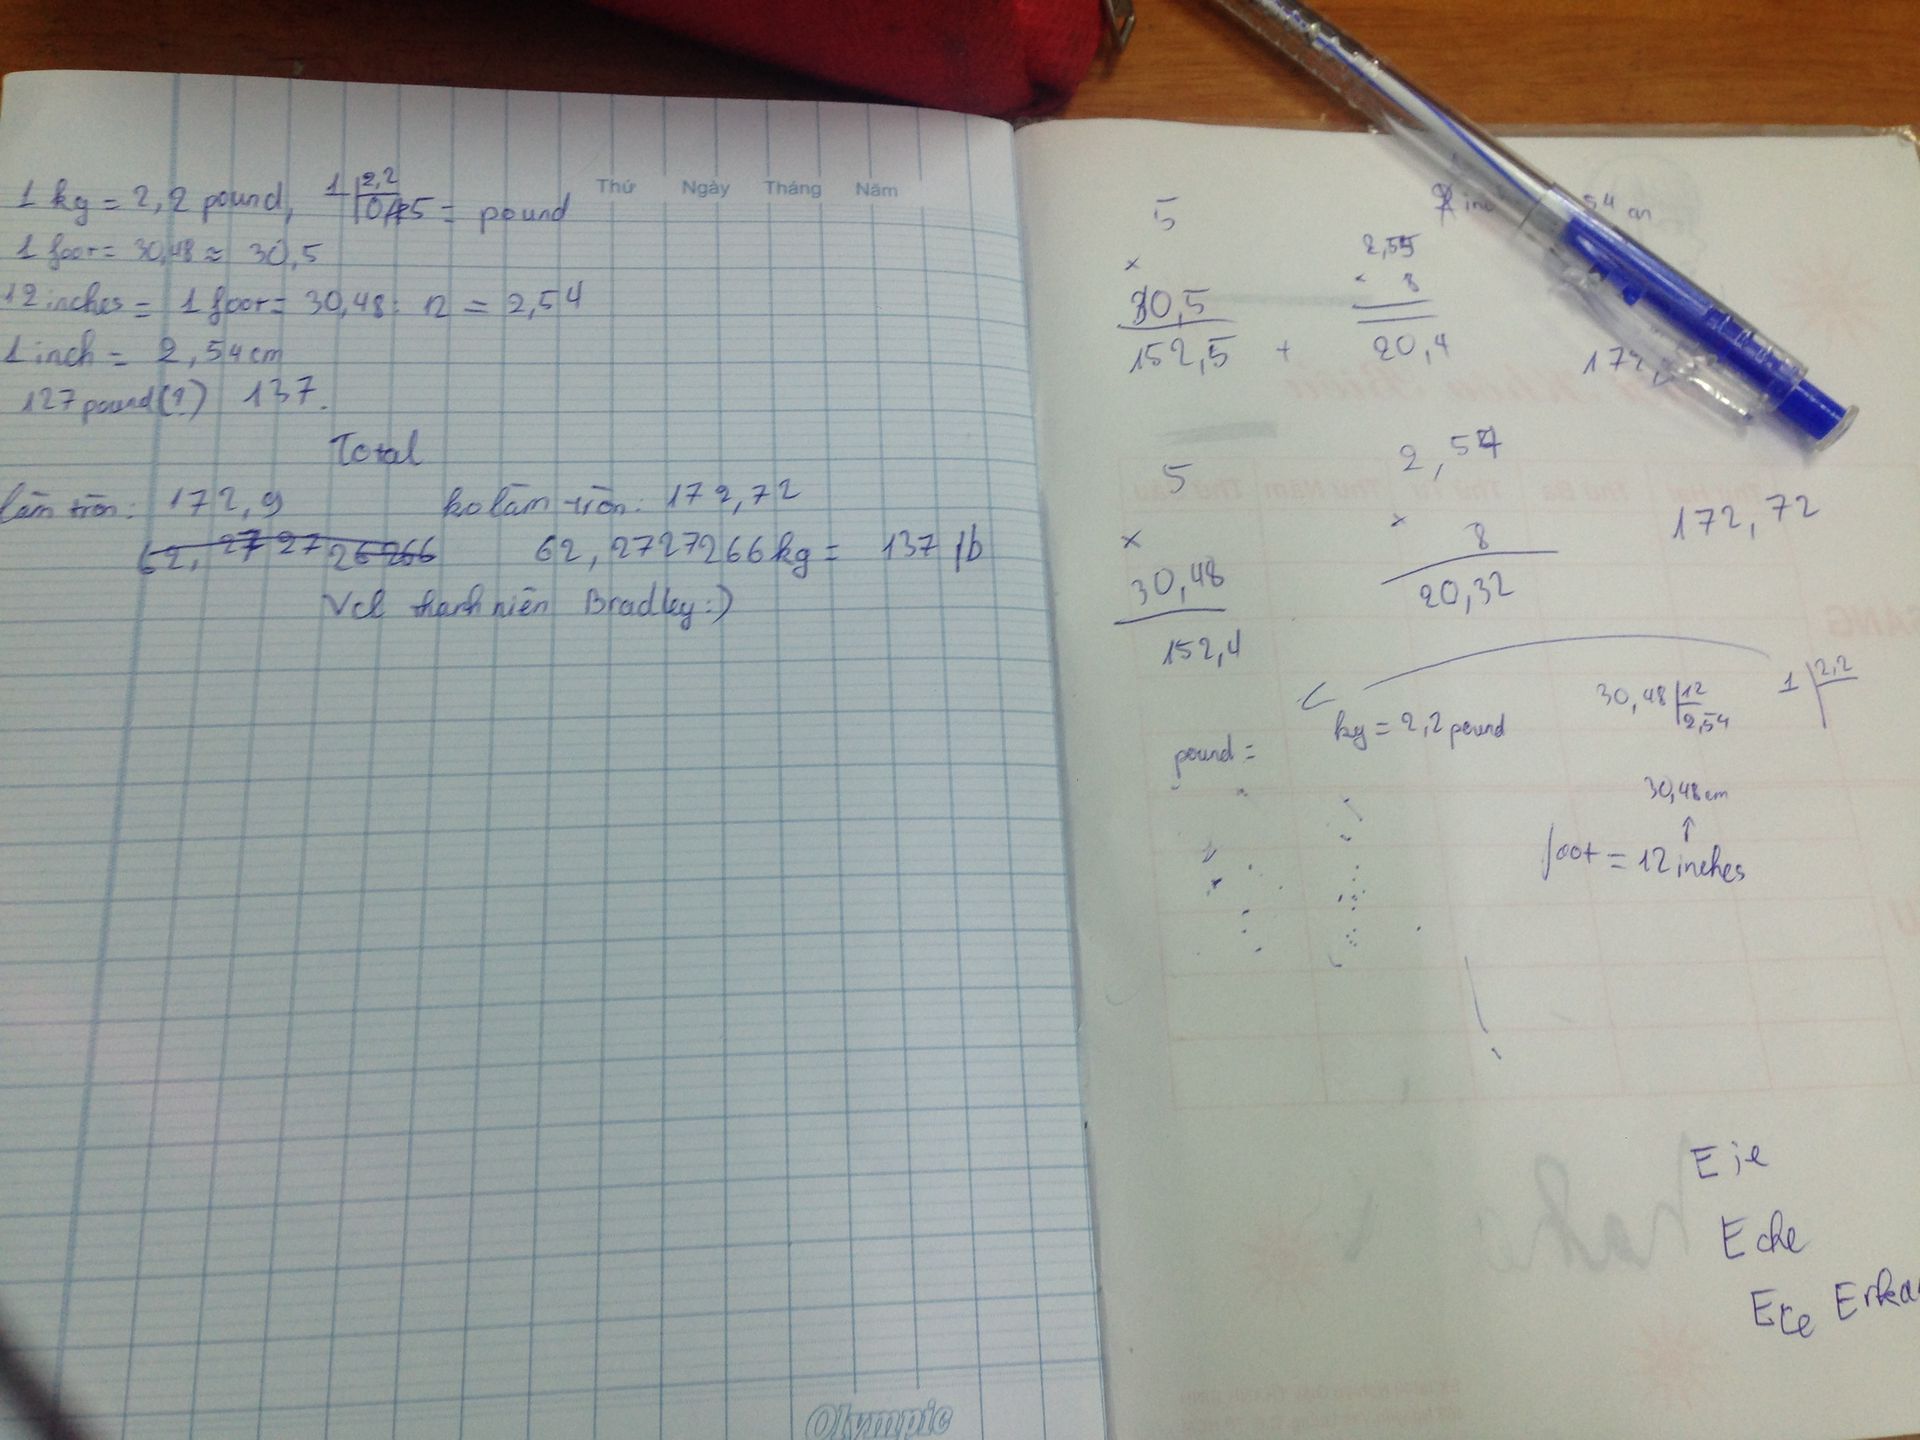 Thứ Ngày Tháng Năm
1 kg = 2,2 pound, 1 2,2 = pound
1 foot = 30,48 ≈ 30,5
12 inches = 1 foot = 30,48 : 12 = 2,54
1 inch = 2,54 cm
127 pound (?) 137.
Total
làm tròn: 172,9 ko làm tròn: 172,72
62,2727266 kg = 137 lb
Vcl thanh niên Bradley :)
Olympic
5
2,55
× 8
× 30,5
152,5 + 20,4
5 2,54
× × 8 172,72
30,48 20,32
152,4
30,48 12 1 2,2
2,54
kg = 2,2 pound
pound =
30,48 cm
↑
foot = 12 inches
Eje
Eche
Ece